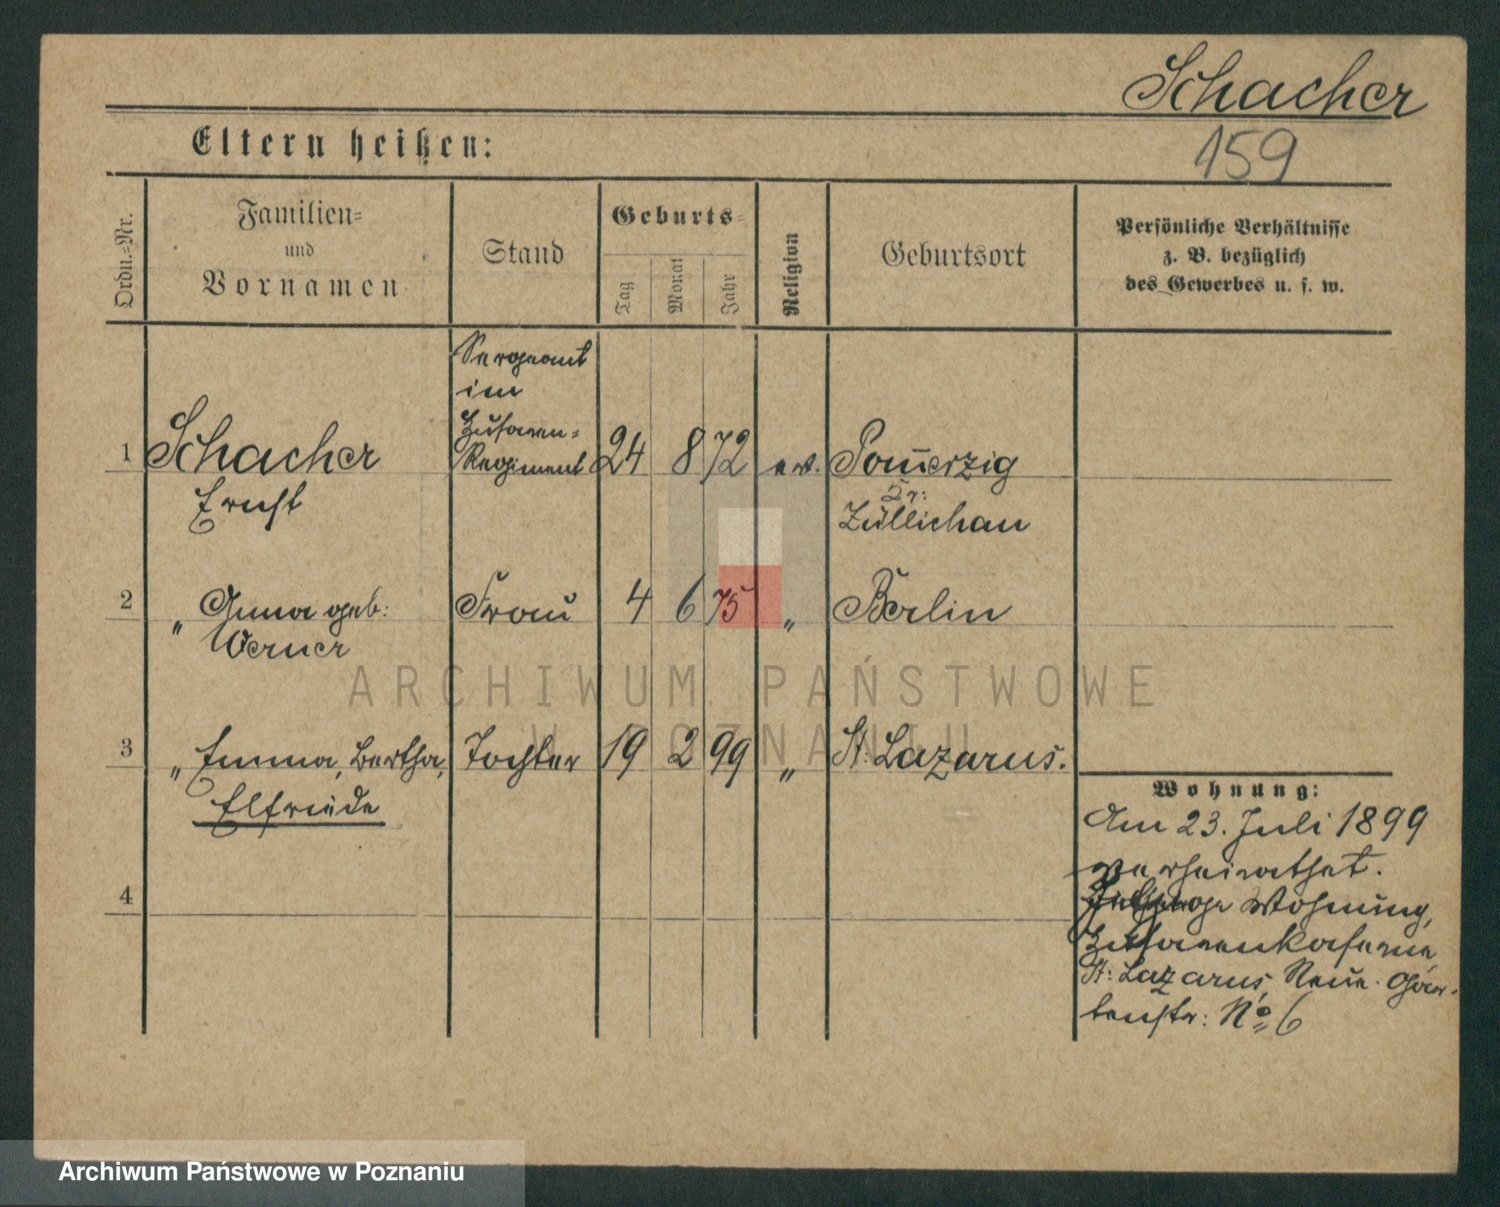 Schacher
159
Eltern heißen:
Ordn.=Nr.
Familien=
und
Vornamen
Stand
Geburts=
Tag
Monat
Jahr
Religion
Geburtsort
Persönliche Verhältnisse
z. B. bezüglich
des Gewerbes u. s. w.
Sergeant
im
Husaren=
Regiment
1 Schacher 24 8 72 ev. Pom̄erzig
Ernst Kr: Züllichau
2 " Anna geb: Frau 4 6 75 " Berlin
Werner
3 " Emma, Bertha, Tochter 19 2 99 " St: Lazarus.
Elfriede
4
Wohnung:
Am 23. Juli 1899
verheirathet.
Wohnung,
Husarenkaserne
St: Lazarus, Neue Gar-
tenstr: No 6
ARCHIWUM PAŃSTWOWE
W POZNANIU
Archiwum Państwowe w Poznaniu